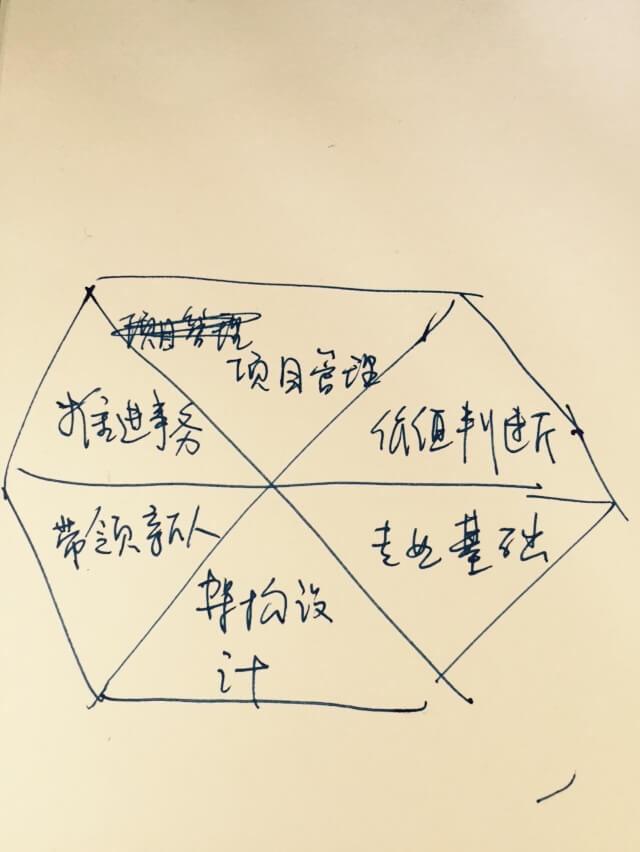 项目管理
项目管理
推进事务
价值判断
带领新人
专业基础
架构设
计